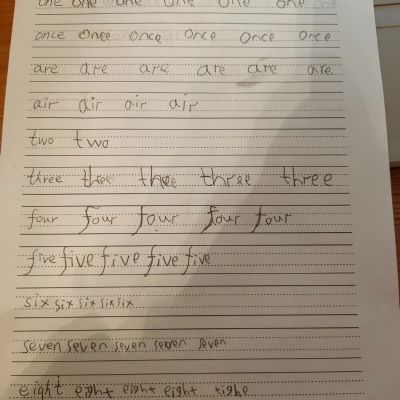 one one one one one one
once once once once once once
are are are are are are
air air air air
two two
three three thee three three
four four four four four
five five five five five
six six six six six
seven seven seven seven seven
eight eight eight eight